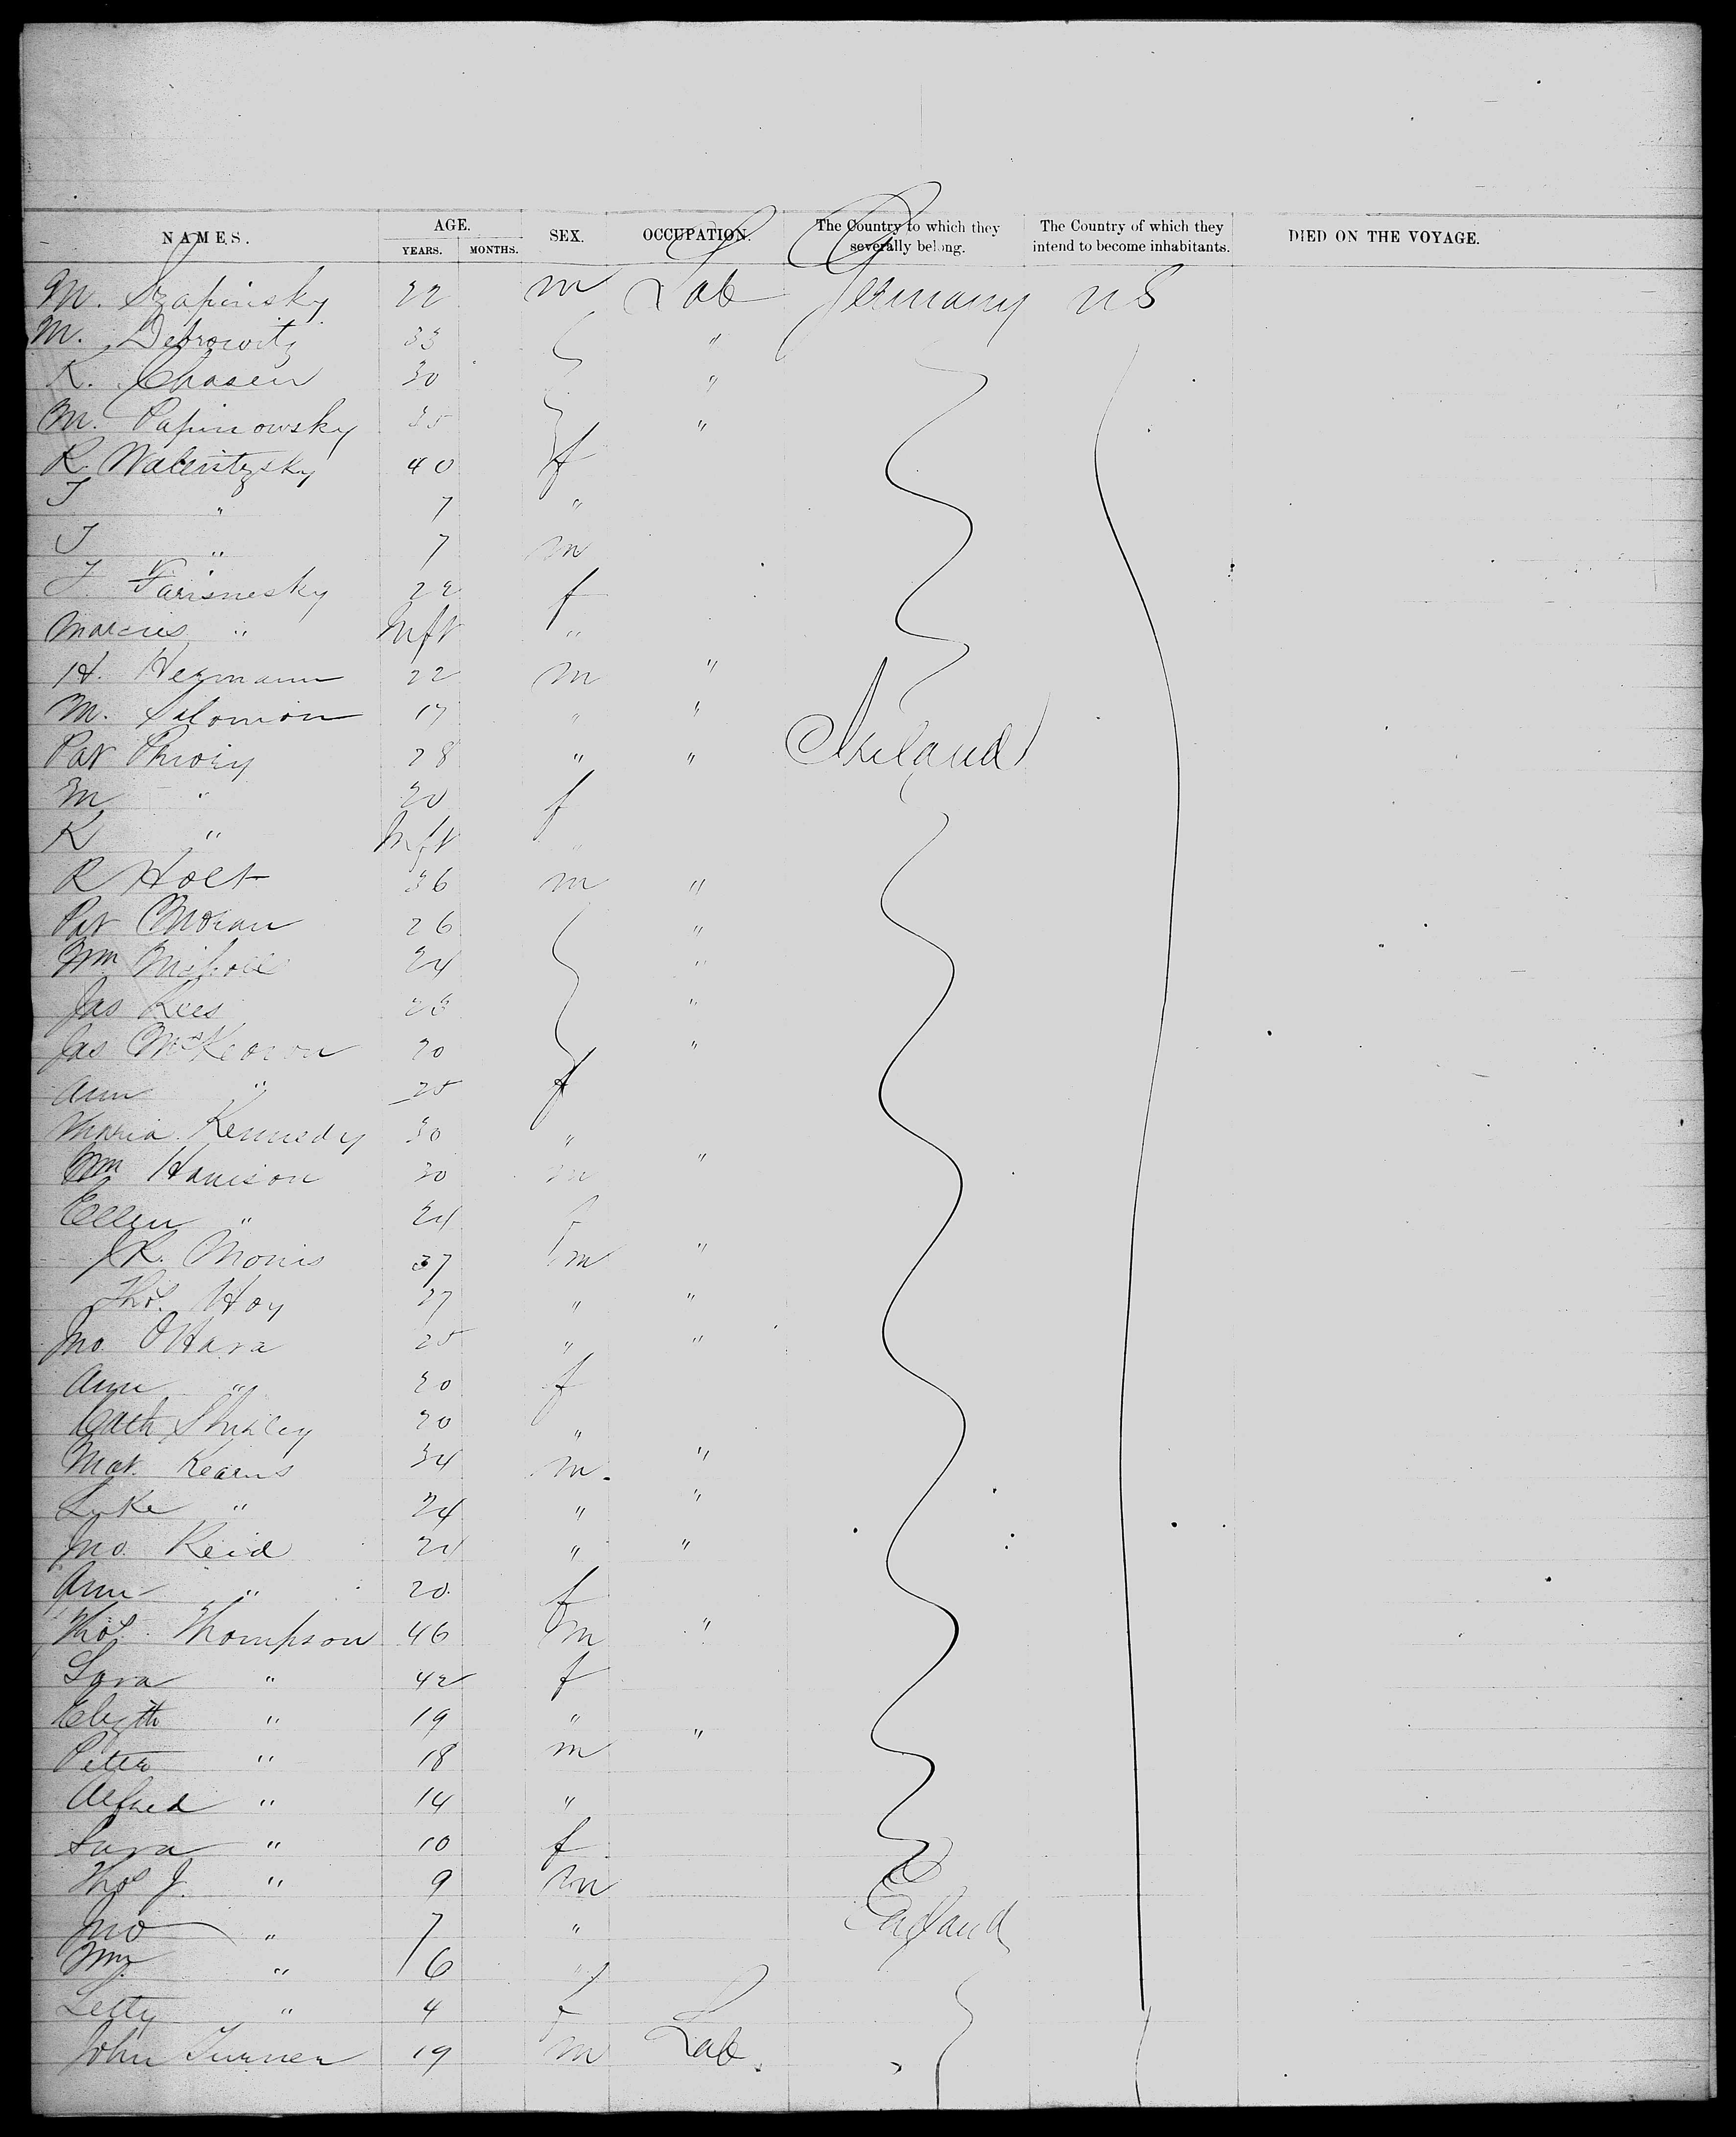 NAMES. AGE. YEARS. MONTHS. SEX. OCCUPATION. The Country to which they severally belong. The Country of which they intend to become inhabitants. DIED ON THE VOYAGE.
M. Szapinsky 22 m Lab Germany US
M. Debrowitz 33 "
K. Chasen 30 "
M. Papinowsky 35 "
R. Walentzsky 40 f
T " 7 "
J " 7 m
J Farisnesky 22 f
Marcus " Inft "
H. Hermann 22 m "
M. Salomon 17 " "
Pat Priory 28 " " Ireland
M " 20 f
K " Inft "
R Holt 36 m "
Pat Moran 26 "
Wm 24 "
Jas Rees 28 "
Jas McKeown 20 "
Ann " 25 f
Maria Kennedy 30 "
Wm Harrison 30 m "
Ellen " 24 f
J R. Morris 37 m "
Thos. Hoy 27 " "
Jno O'Hara 25 " "
Ann " 20 f
Cath Shirley 20 "
Mat. Kearns 34 m. "
Luke " 24 " "
Jno. Reid 24 " "
Ann " 20. f
Thos. Thompson 46 m "
Sara " 42 f
Elizth " 19 "
Peter " 18 m "
Alfred " 14 "
Sara " 10 f
Thos J. " 9 m
Jno " 7 " England
Wm. " 6 "
Letty " 4 f
John Turner 19 m Lab.